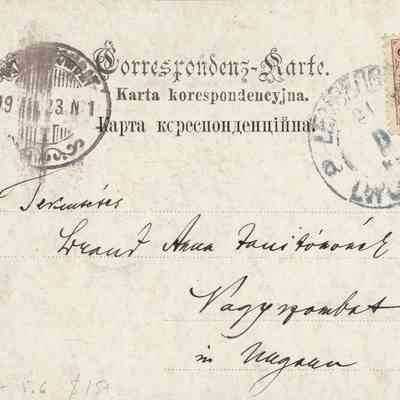 Correspondenz-Karte.
Karta korespondencyjna.
Карта кореспонденційна.
99 23 N 1
LEMBERG
LWÓW
Tekintetes
Brand Anna tanitónőnek
Nagyszombat
in Ungarn